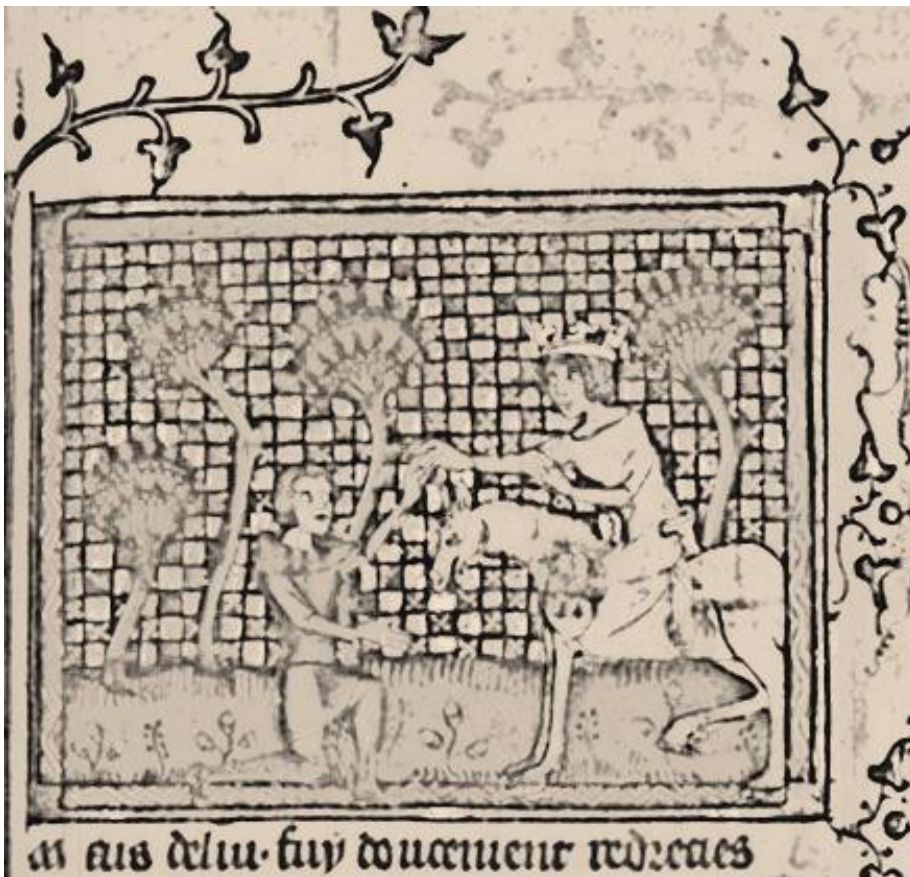 De lui fuy doucement redrecies